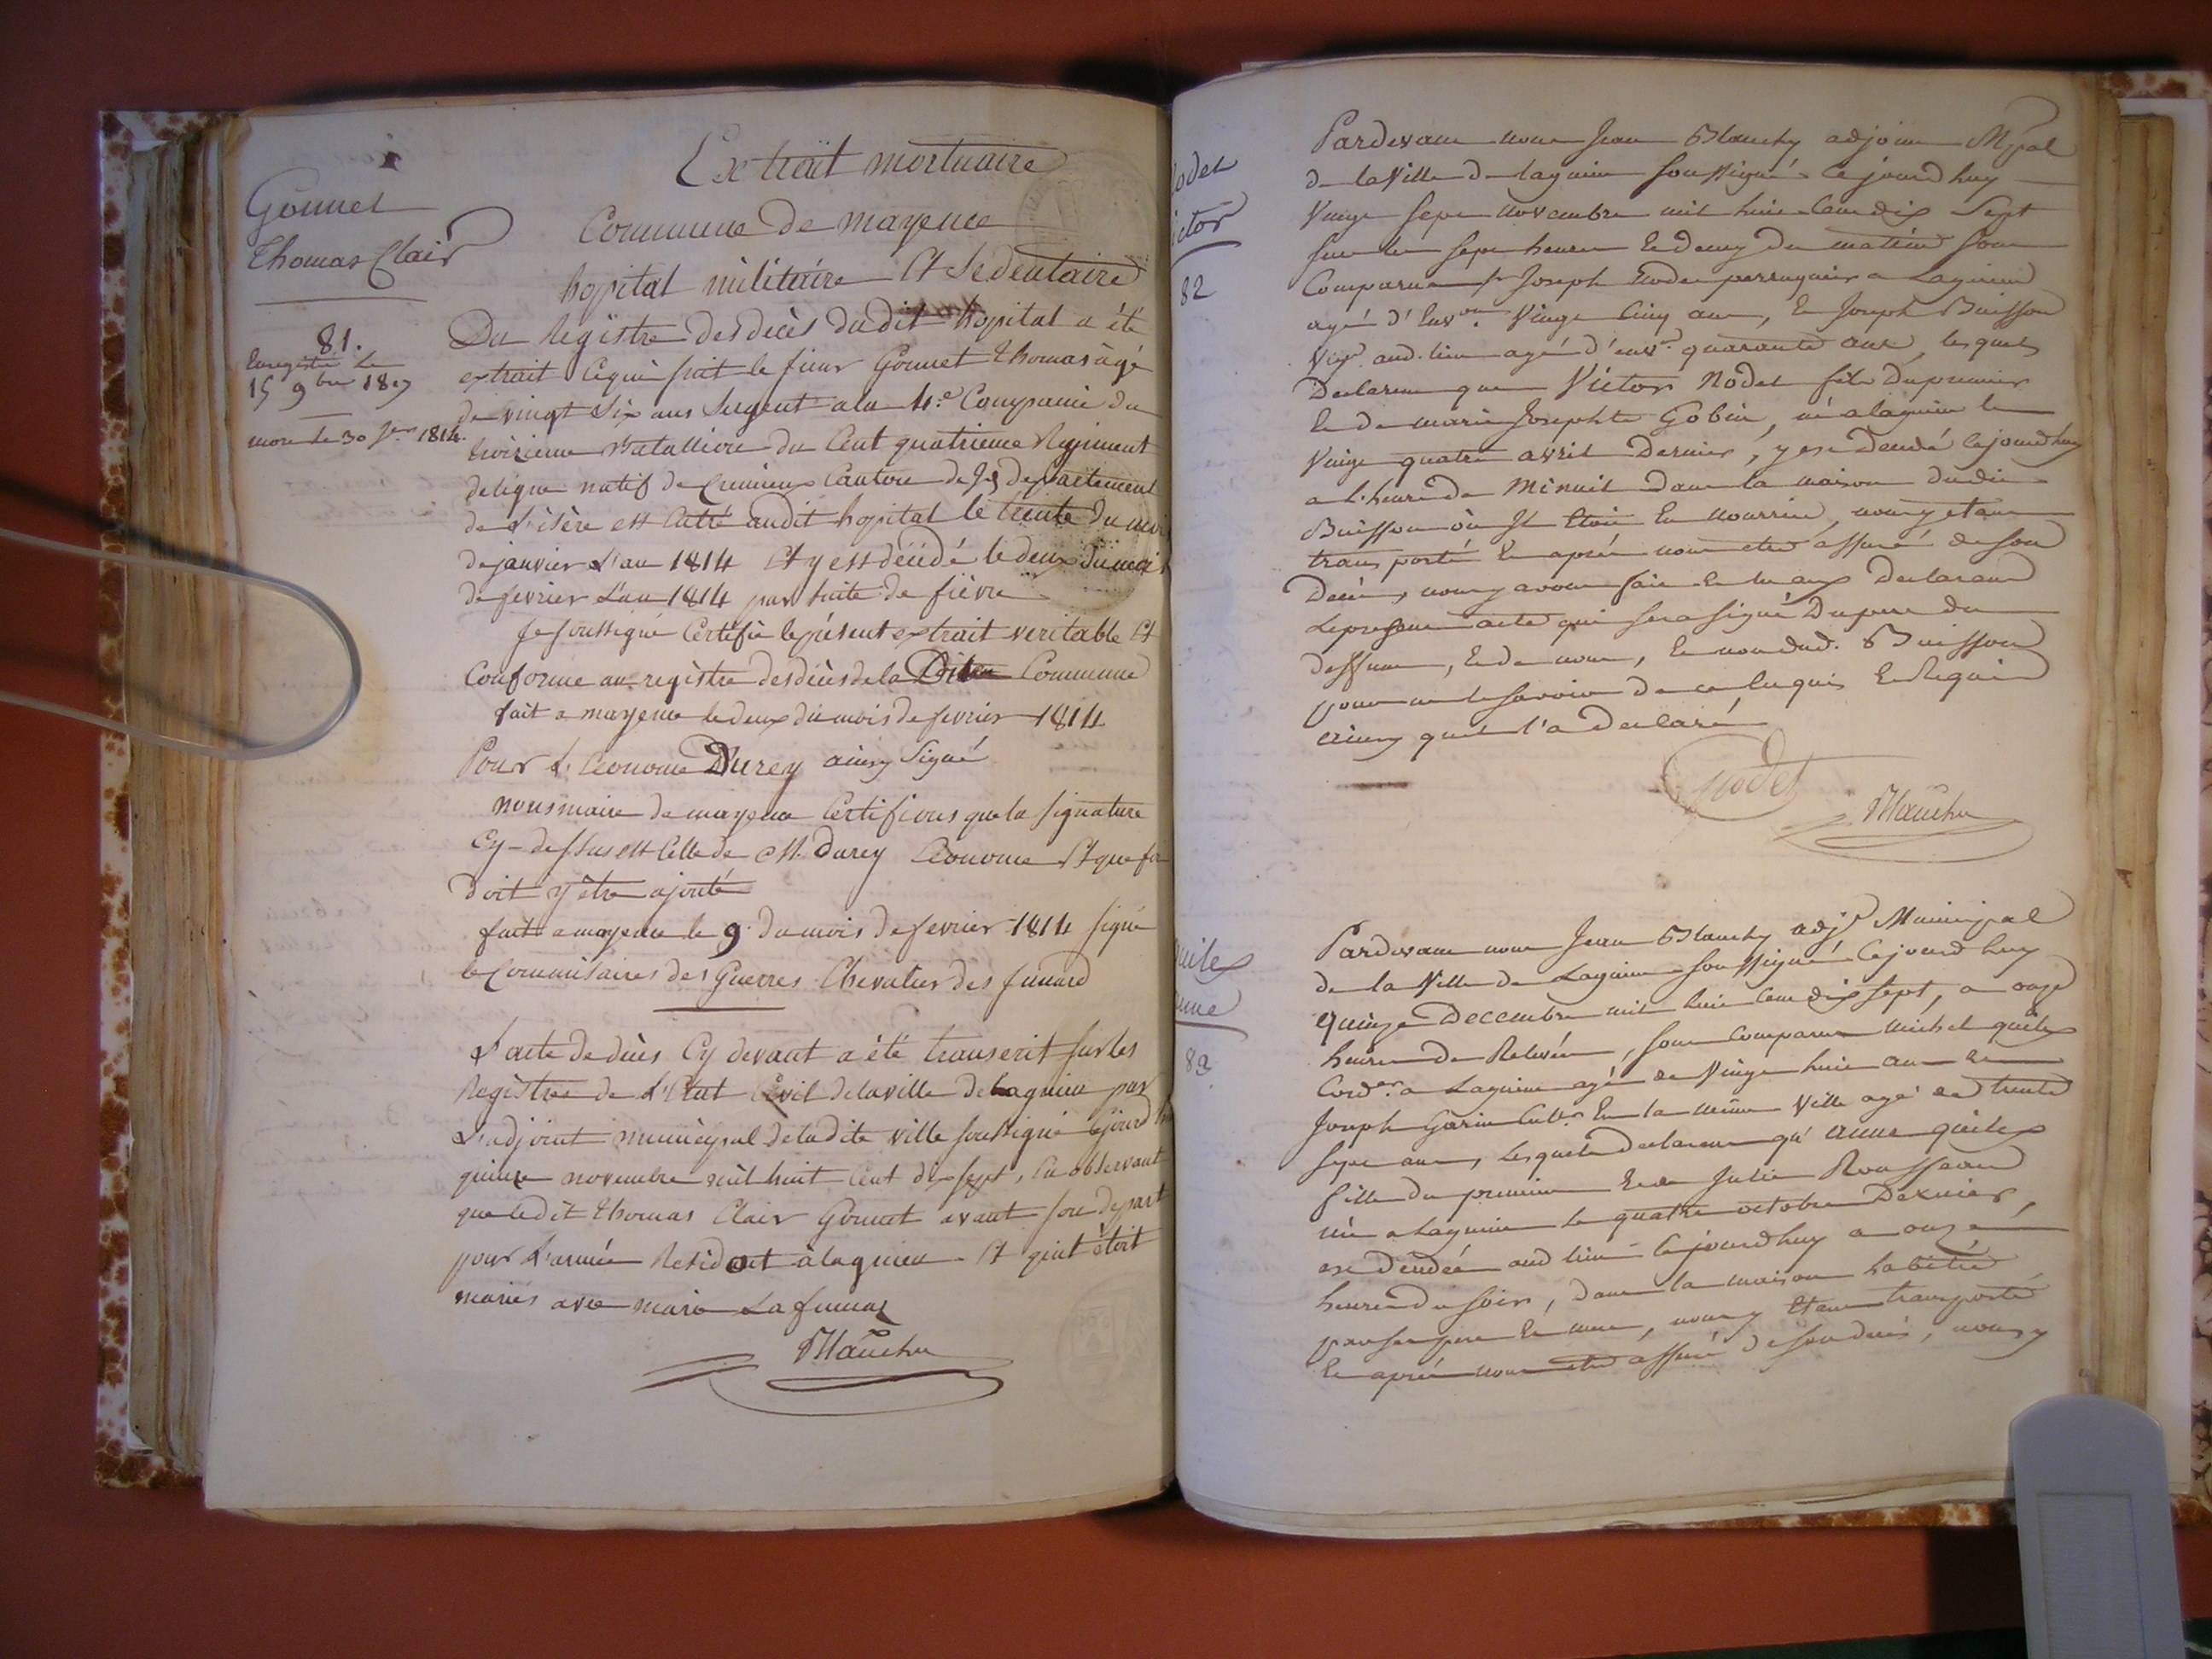 Gonnet
Thomas Clair
81.
Enregistré le
15 9bre 1817
mort le 30 Jer 1814.
Extrait mortuaire
Commune de mayence
hopital militaire Et Sedentaire
Du Registre des decès dudit hopital a été
extrait Ce qui suit le sieur Gonnet Thomas âgé
de vingt Six ans Sergent a la 4.e Compagnie du
troisieme Batallion du Cent quatrieme Regiment
de ligne natif de Cremieux Canton de Id departement
de L'isère est Entré audit hopital le trente du mois
de janvier L'an 1814 Et y est décédé le deux du mois
de fevrier L'an 1814 par suite de fièvre
Je soussigné Certifie le présent extrait veritable Et
Conforme au registre des décès de la Dite Commune
fait a mayence le deux du mois de fevrier 1814
Pour L'Econome Durey ainsy Signé
nous maire de mayence Certifions que la signature
Cy-dessus est Celle de M. Durey Econome Et que foi
doit y être ajouté
fait a mayence le 9 du mois de fevrier 1814 signé
le Commissaires des Guerres Chevalier des
L'acte de décès Cy devant a été transcrit sur les
Registres de L'Etat Civil de la ville de Lagnieu par
L'adjoint municipal de ladite ville soussigné Cejourd'hui
quinze novembre mil huit Cent dix sept, En observant
que ledit Thomas Clair Gonnet avant son depart
pour L'armée Residoit à lagnieu Et qu'il étoit
mariés avec marie Lafumaz
Blanchy
Nodet
Victor
82
Pardevant nous Jean Blanchy adjoint Mpal
de la Ville de lagnieu soussigné Ce jourd'huy
Vingt sept novembre mil huit Cent dix Sept
sur les sept heures Et demy du matin sont
Comparus sr Joseph Nodet perruquier a Lagnieu
agé d'Env.on Vingt Cinq ans, Et Joseph Buisson
Vig.n aud. lieu agé d'env.on quarante ans, lesquels
Declarent que Victor Nodet fils du premier
Et de marie Josephte Gobin, né a lagnieu le
Vingt quatre avril Dernier, y est decedé Cejourd'huy
a L'heure de Minuit dans la maison dudit
Buisson où Il Etoit En nourrice, nous y etant
transporté Et après nous etre assuré de son
Decès, nous y avons fait En
Le present acte qui sera signé Du pere du
deffunt, Et de nous, Et non dud. Buisson
pour ne le savoir de ce Enquis Et Requis
ainsy qu'il l'a declaré
Nodet
Blanchy
Quilex
anne
83
Pardevant nous Jean Blanchy adjt Municipal
de la Ville de Lagnieu soussigné Cejourd'huy
quinze Decembre mil huit Cent dix sept, a onze
heures de Relevée, sont Comparus michel quilex
Cord.er a Lagnieu agé de Vingt huit ans Et
Joseph Garin Cult.r En la même Ville agé de trente
sept ans, Lesquels declarent qu'anne quilex
fille du premier Et de Julie Rousseau
née a Lagnieu le quatre octobre Dernier,
est décedée aud lieu Cejourd'huy a onze
heures du soir, dans la maison habitée
par ses pere Et mere, nous y Etant transporté
Et après nous etre assuré de son decès, nous y